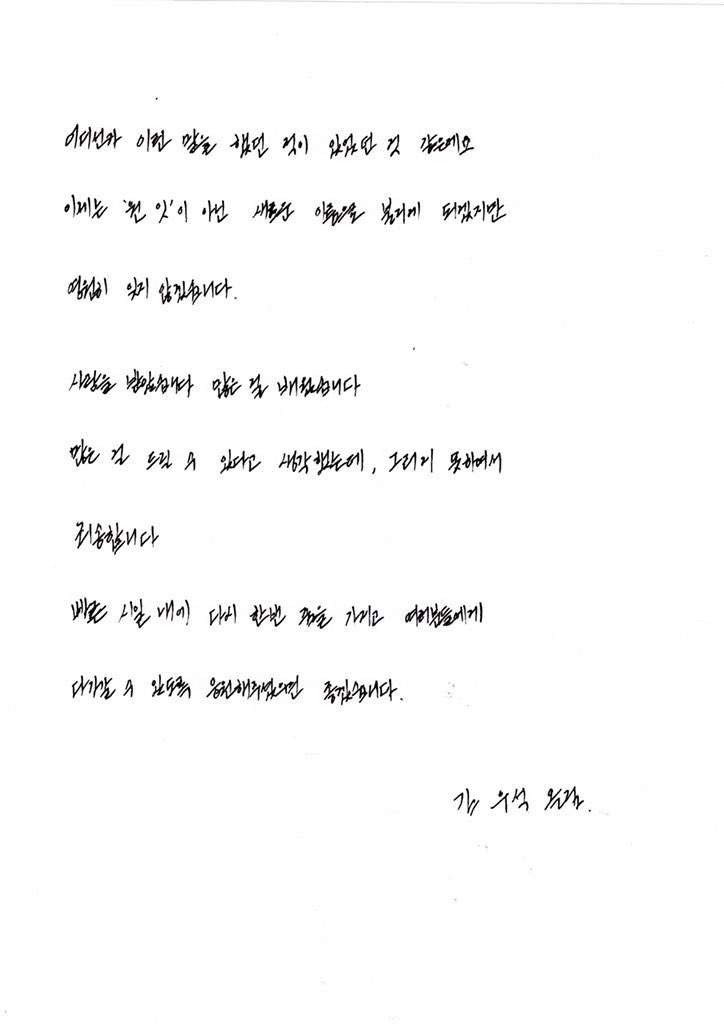 어디선가 이런 말을 했던 적이 있었던 것 같은데요
이제는 '원 잇'이 아닌 새로운 이름으로 불리게 되겠지만
영원히 잊지 않겠습니다.
사랑을 받았습니다 많은 걸 배웠습니다
많은 걸 드릴 수 있다고 생각했는데, 그러지 못하여서
죄송합니다
빠른 시일 내에 다시 한번 꿈을 가지고 여러분들에게
다가갈 수 있도록 응원해주셨으면 좋겠습니다.
김 우석 올림.